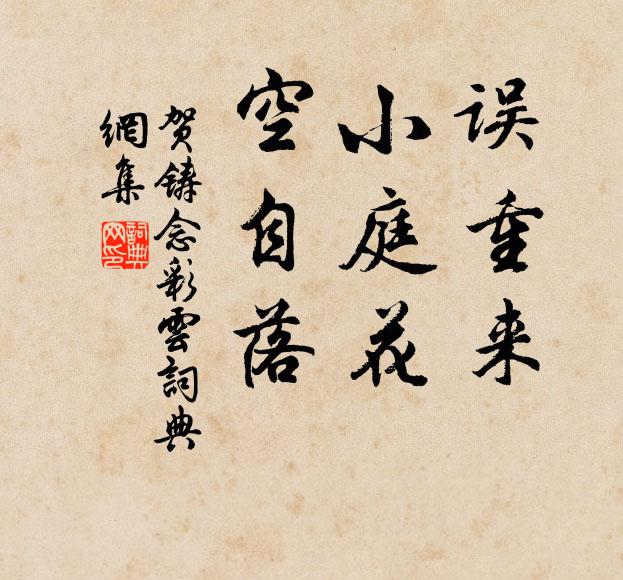 误重来
小庭花
空自落
贺铸念彩雲詞典
網集
詞典
网印